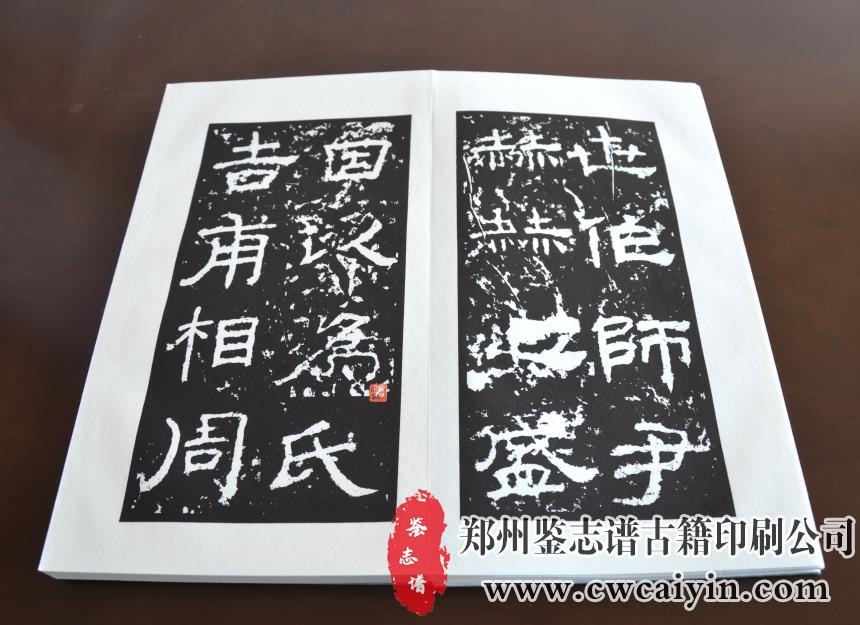 世作師尹
赫赫之盛
因以為氏
吉甫相周
鉴志谱
郑州鉴志谱古籍印刷公司
www.cwcaiyin.com